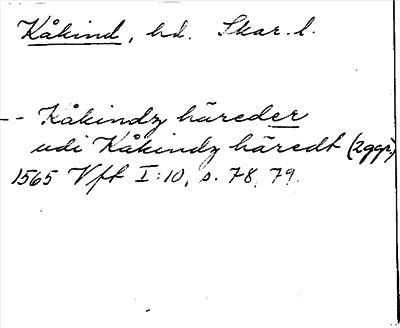 Kåkind, hd. Skar. l.
-- Kåkindz häreder
udi Kåkindz häredt (2 ggr)
1565 Vft I:10, s. 78, 79.